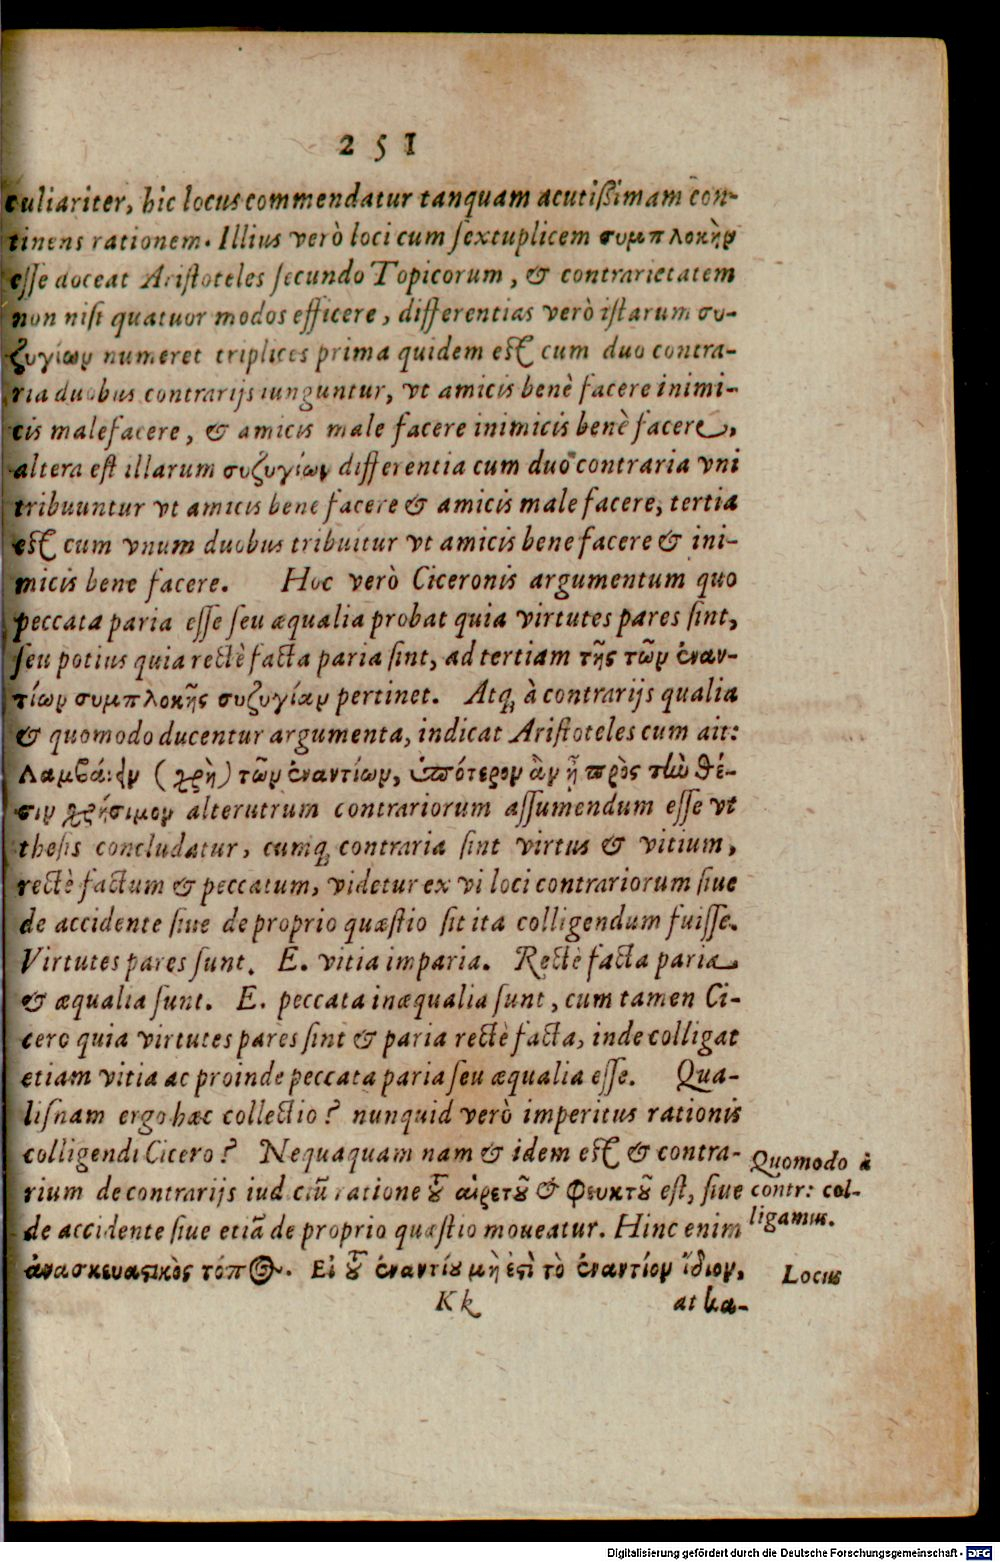 251
culiariter, hic locus commendatur tanquam acutißimam con-
tinens rationem. Illius verò loci cum sextuplicem συμπλοκὴν
esse doceat Aristoteles secundo Topicorum, & contrarietatem
non nisi quatuor modos efficere, differentias verò istarum συ-
ζυγίων numeret triplices prima quidem est cum duo contra-
ria duobus contrarijs iunguntur, vt amicis benè facere inimi-
cis malefacere, & amicis male facere inimicis benè facere,
altera est illarum συζυγίων differentia cum duo contraria vni
tribuuntur vt amicis bene facere & amicis male facere, tertia
est cum vnum duobus tribuitur vt amicis bene facere & ini-
micis bene facere. Hoc verò Ciceronis argumentum quo
peccata paria esse seu æqualia probat quia virtutes pares sint,
seu potius quia rectè facta paria sint, ad tertiam τῆς τῶν ἐναν-
τίων συμπλοκῆς συζυγίαν pertinet. Atq́; à contrarijs qualia
& quomodo ducentur argumenta, indicat Aristoteles cum ait:
Λαμβάνειν (χρὴ) τῶν ἐναντίων, ὁπότερον ἂν ᾖ πρὸς τὴν θέ-
σιν χρήσιμον alterutrum contrariorum assumendum esse vt
thesis concludatur, cumq́; contraria sint virtus & vitium,
rectè factum & peccatum, videtur ex vi loci contrariorum siue
de accidente siue de proprio quæstio sit ita colligendum fuisse.
Virtutes pares sunt. E. vitia imparia. Rectè facta paria
& æqualia sunt. E. peccata inæqualia sunt, cum tamen Ci-
cero quia virtutes pares sint & paria rectè facta, inde colligat
etiam vitia ac proinde peccata paria seu æqualia esse. Qua-
lisnam ergo hæc collectio? nunquid verò imperitus rationis
colligendi Cicero? Nequaquam nam & idem est & contra-
rium de contrarijs iudiciũ ratione ȣ͂ αἱρετȣ͂ & φευκτȣ͂ est, siue
de accidente siue etiã de proprio quæstio moueatur. Hinc enim
ἀνασκευαστικὸς τόπος. Εἰ ȣ͂ ἐναντίȣ μὴ ἐστὶ τὸ ἐναντίον ἴδιον,
Kk
at κα-
Quomodo à
contr: col-
ligamus.
Locus
Digitalisierung gefördert durch die Deutsche Forschungsgemeinschaft - DFG